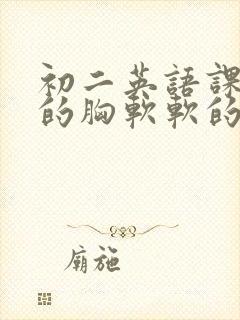 初二英語課
的胸軟軟的
廟施